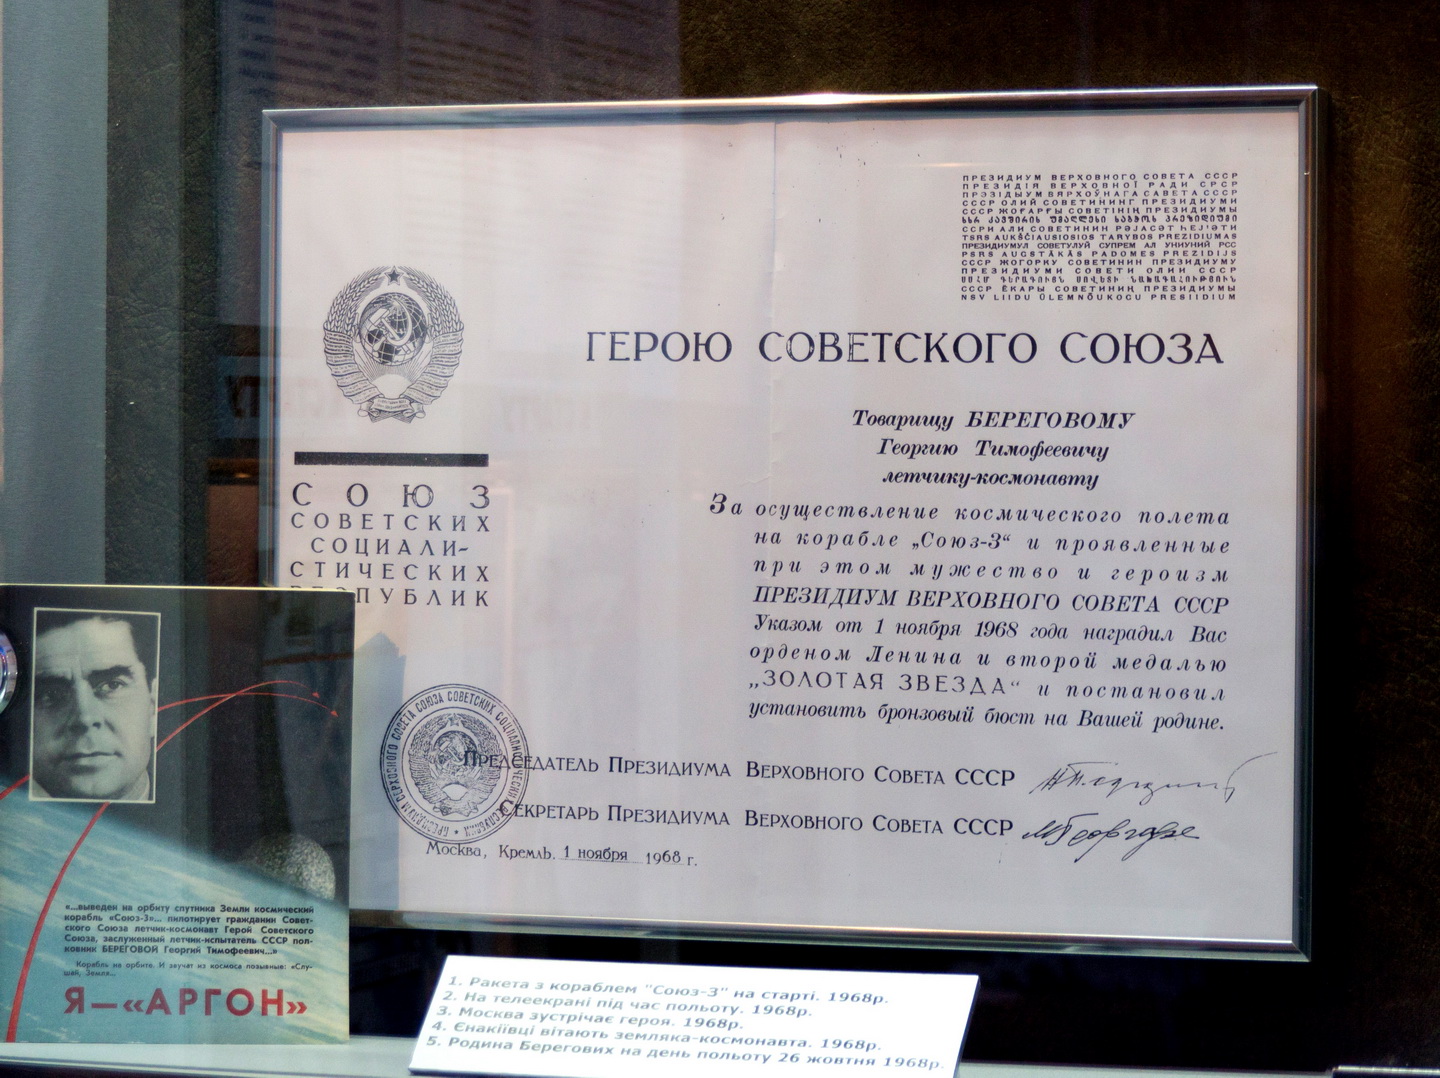 ПРЕЗИДИУМ ВЕРХОВНОГО СОВЕТА СССР
ПРЕЗИДІЯ ВЕРХОВНОЇ РАДИ СРСР
ПРЭЗІДЫУМ ВЯРХОЎНАГА САВЕТА СССР
СССР ОЛИЙ СОВЕТИНИНГ ПРЕЗИДИУМИ
СССР ЖОҒАРҒЫ СОВЕТІНІҢ ПРЕЗИДИУМЫ
ССРИ АЛИ СОВЕТИНИН РӘЈАСӘТ ҺЕЈ'ӘТИ
TSRS AUKŠČIAUSIOSIOS TARYBOS PREZIDIUMAS
ПРЕЗИДИУМУЛ СОВЕТУЛУЙ СУПРЕМ АЛ УНИУНИЙ РСС
PSRS AUGSTĀKĀS PADOMES PREZIDIJS
СССР ЖОГОРКУ СОВЕТИНИН ПРЕЗИДИУМУ
ПРЕЗИДИУМИ СОВЕТИ ОЛИИ СССР
СССР ЁКАРЫ СОВЕТИНИҢ ПРЕЗИДИУМЫ
NSV LIIDU ÜLEMNÕUKOGU PRESIIDIUM
ГЕРОЮ СОВЕТСКОГО СОЮЗА
Товарищу БЕРЕГОВОМУ
Георгию Тимофеевичу
летчику-космонавту
За осуществление космического полета
на корабле „Союз-3“ и проявленные
при этом мужество и героизм
ПРЕЗИДИУМ ВЕРХОВНОГО СОВЕТА СССР
Указом от 1 ноября 1968 года наградил Вас
орденом Ленина и второй медалью
„ЗОЛОТАЯ ЗВЕЗДА“ и постановил
установить бронзовый бюст на Вашей родине.
СОЮЗ
СОВЕТСКИХ
СОЦИАЛИ-
СТИЧЕСКИХ
РЕСПУБЛИК
ПРЕЗИДИУМ ВЕРХОВНОГО СОВЕТА СОЮЗА СОВЕТСКИХ СОЦИАЛИСТИЧЕСКИХ РЕСПУБЛИК
ПРЕДСЕДАТЕЛЬ ПРЕЗИДИУМА ВЕРХОВНОГО СОВЕТА СССР
СЕКРЕТАРЬ ПРЕЗИДИУМА ВЕРХОВНОГО СОВЕТА СССР
Москва, Кремль. 1 ноября 1968 г.
«...выведен на орбиту спутника Земли космический
корабль «Союз-3»... пилотирует гражданин Совет-
ского Союза летчик-космонавт Герой Советского
Союза, заслуженный летчик-испытатель СССР пол-
ковник БЕРЕГОВОЙ Георгий Тимофеевич...»
Корабль на орбите. И звучат из космоса позывные: «Слу-
шай, Земля...
Я—«АРГОН»
1. Ракета з кораблем "Союз-3" на старті. 1968р.
2. На телеекрані під час польоту. 1968р.
3. Москва зустрічає героя. 1968р.
4. Єнакіївці вітають земляка-космонавта. 1968р.
5. Родина Берегових на день польоту 26 жовтня 1968р.